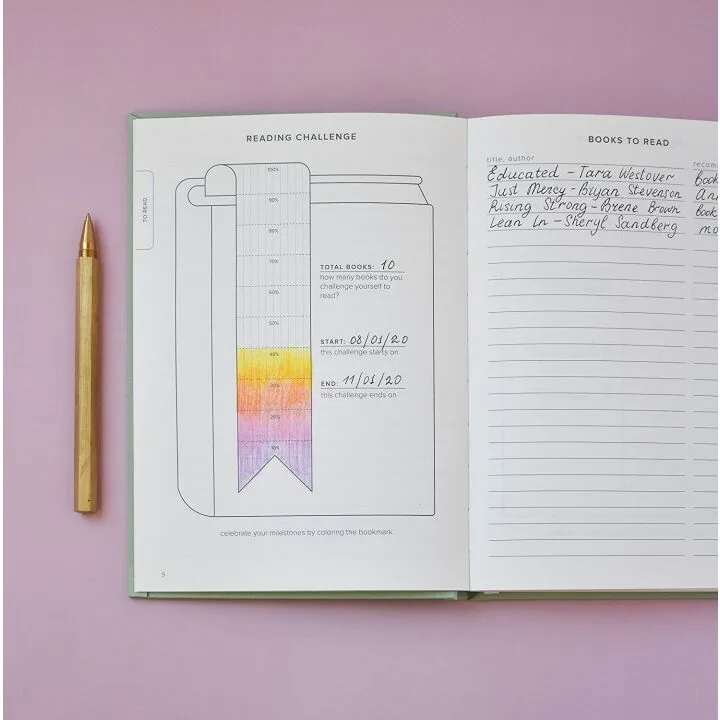 READING CHALLENGE
TO READ
100%
90%
80%
70%
60%
50%
40%
30%
20%
10%
TOTAL BOOKS: 10
how many books do you
challenge yourself to
read?
START: 08/01/20
this challenge starts on
END: 11/01/20
this challenge ends on
celebrate your milestones by coloring the bookmark
9
BOOKS TO READ
title, author recom
Educated - Tara Westover book
Just Mercy - Bryan Stevenson
Rising Strong - Brene Brown book
Lean In - Sheryl Sandberg mo